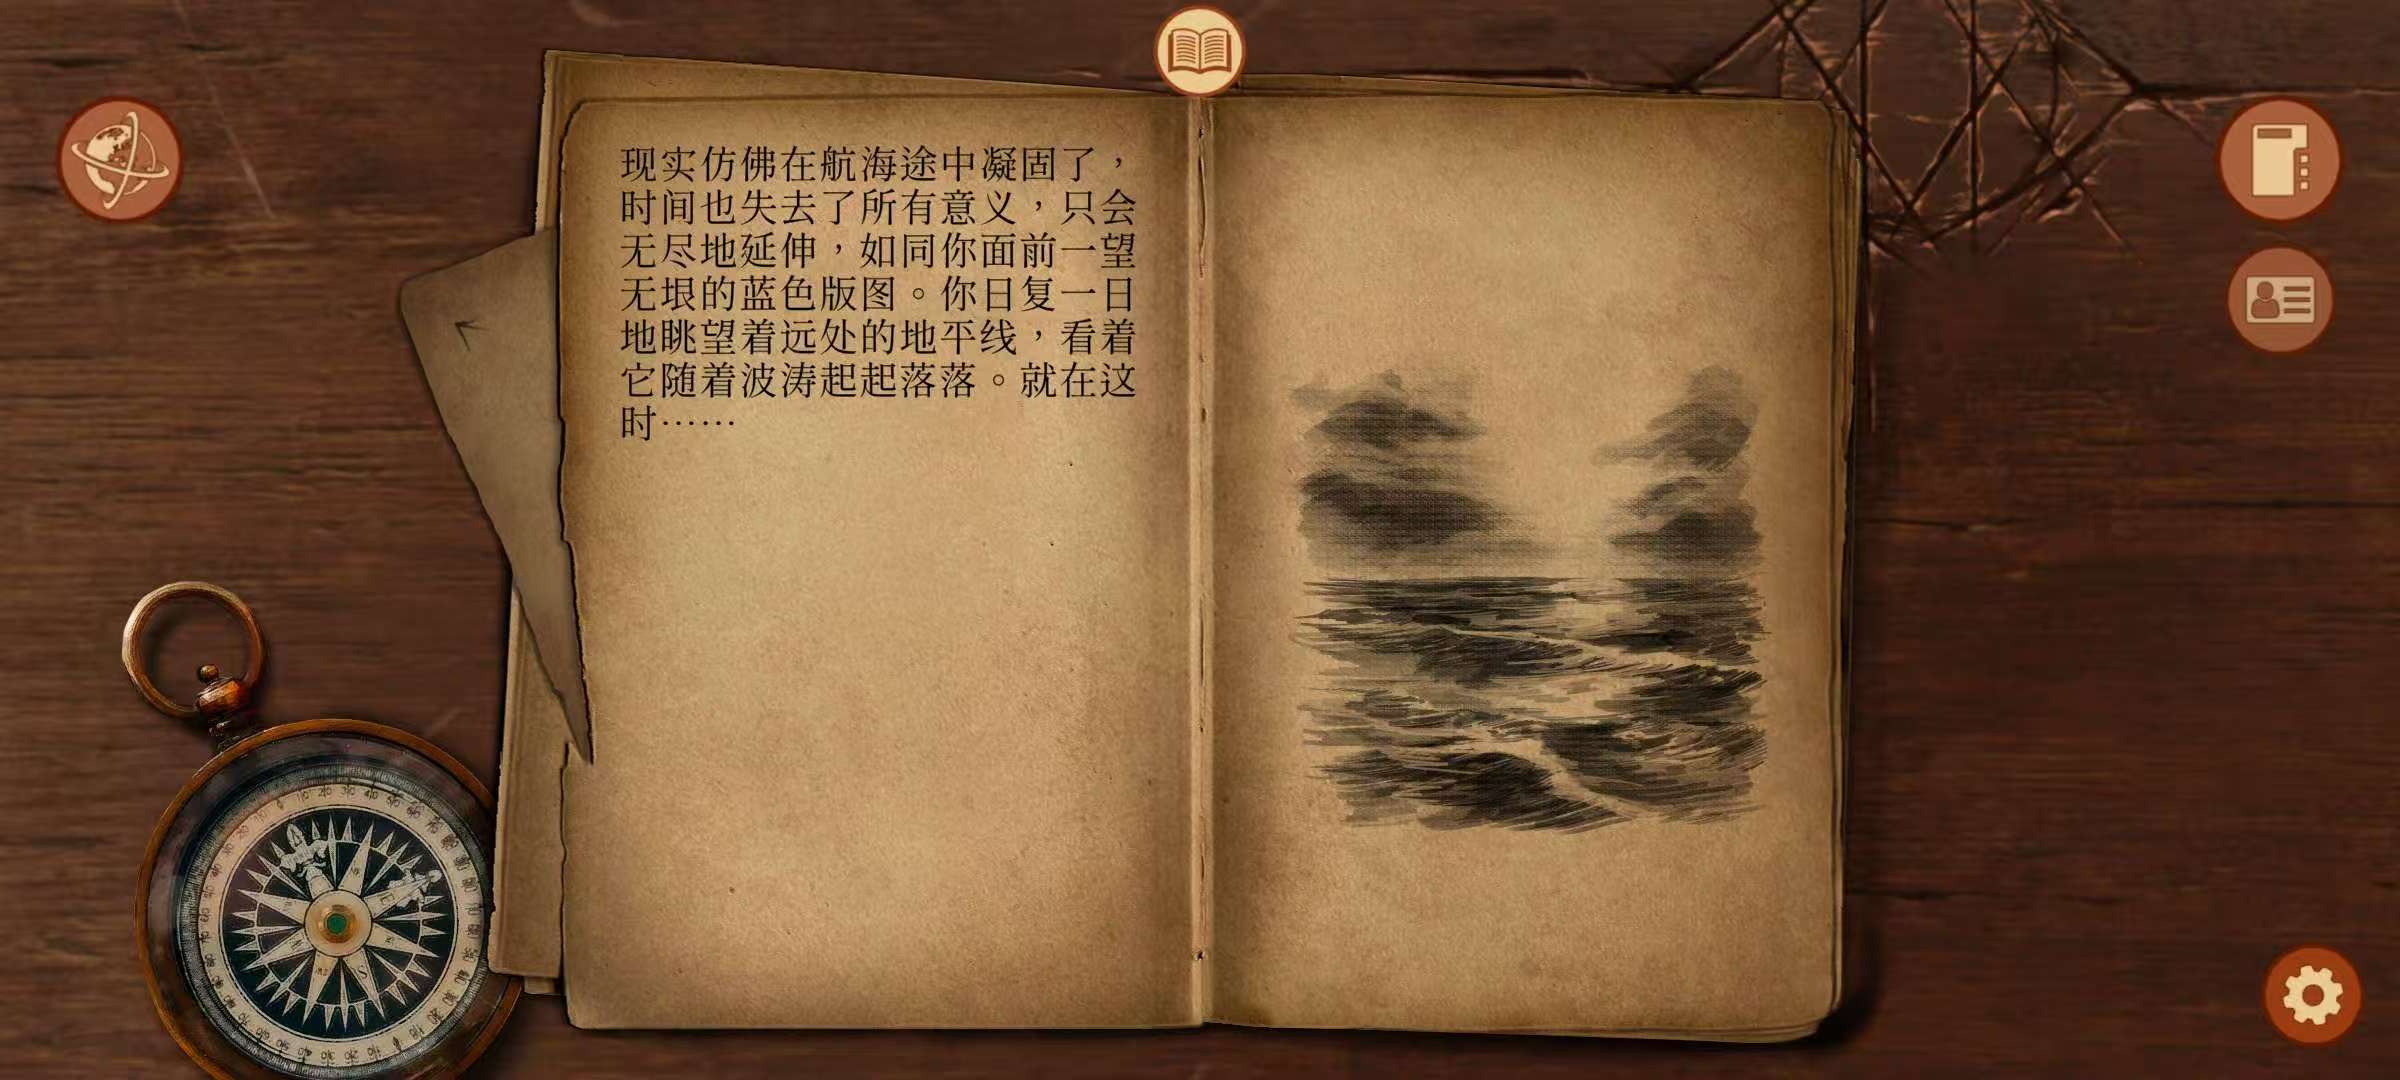 现实仿佛在航海途中凝固了，
时间也失去了所有意义，只会
无尽地延伸，如同你面前一望
无垠的蓝色版图。你日复一日
地眺望着远处的地平线，看着
它随着波涛起起落落。就在这
时……